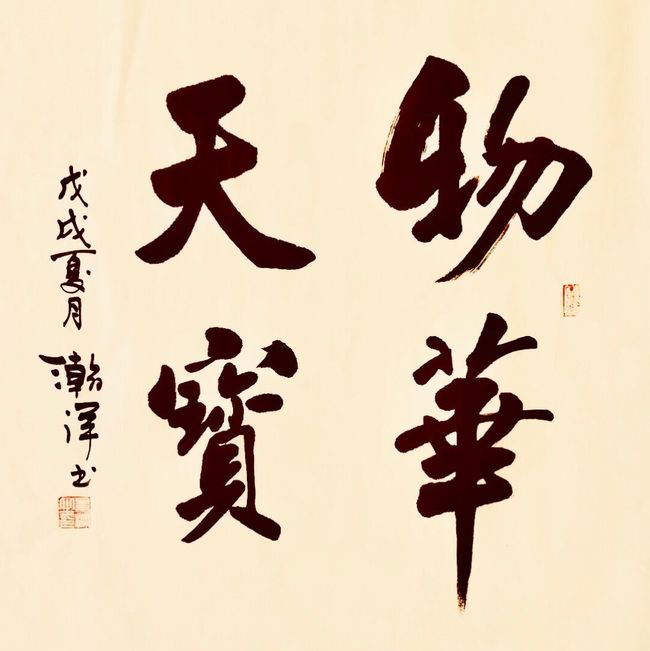 物華
天寳
戊戌夏月
瀚洋书